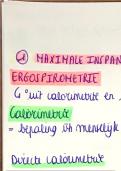 ② MAXIMALE INSPAN
ERGOSPIROMETRIE
↳ °uit calorimetrie en
Calorimetrie
= bepaling vh menselijk
Directe calorimetrie